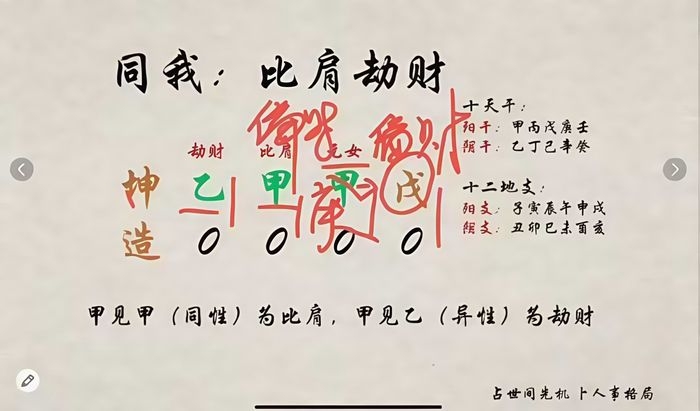 同我：比肩劫财
十天干：
阳干：甲丙戊庚壬
阴干：乙丁己辛癸
偏财
劫财 比肩 元女
坤 乙 甲 甲 戊
造 0 0 0 0
十二地支：
阳支：子寅辰午申戌
阴支：丑卯巳未酉亥
甲见甲（同性）为比肩，甲见乙（异性）为劫财
占世间先机 卜人事格局